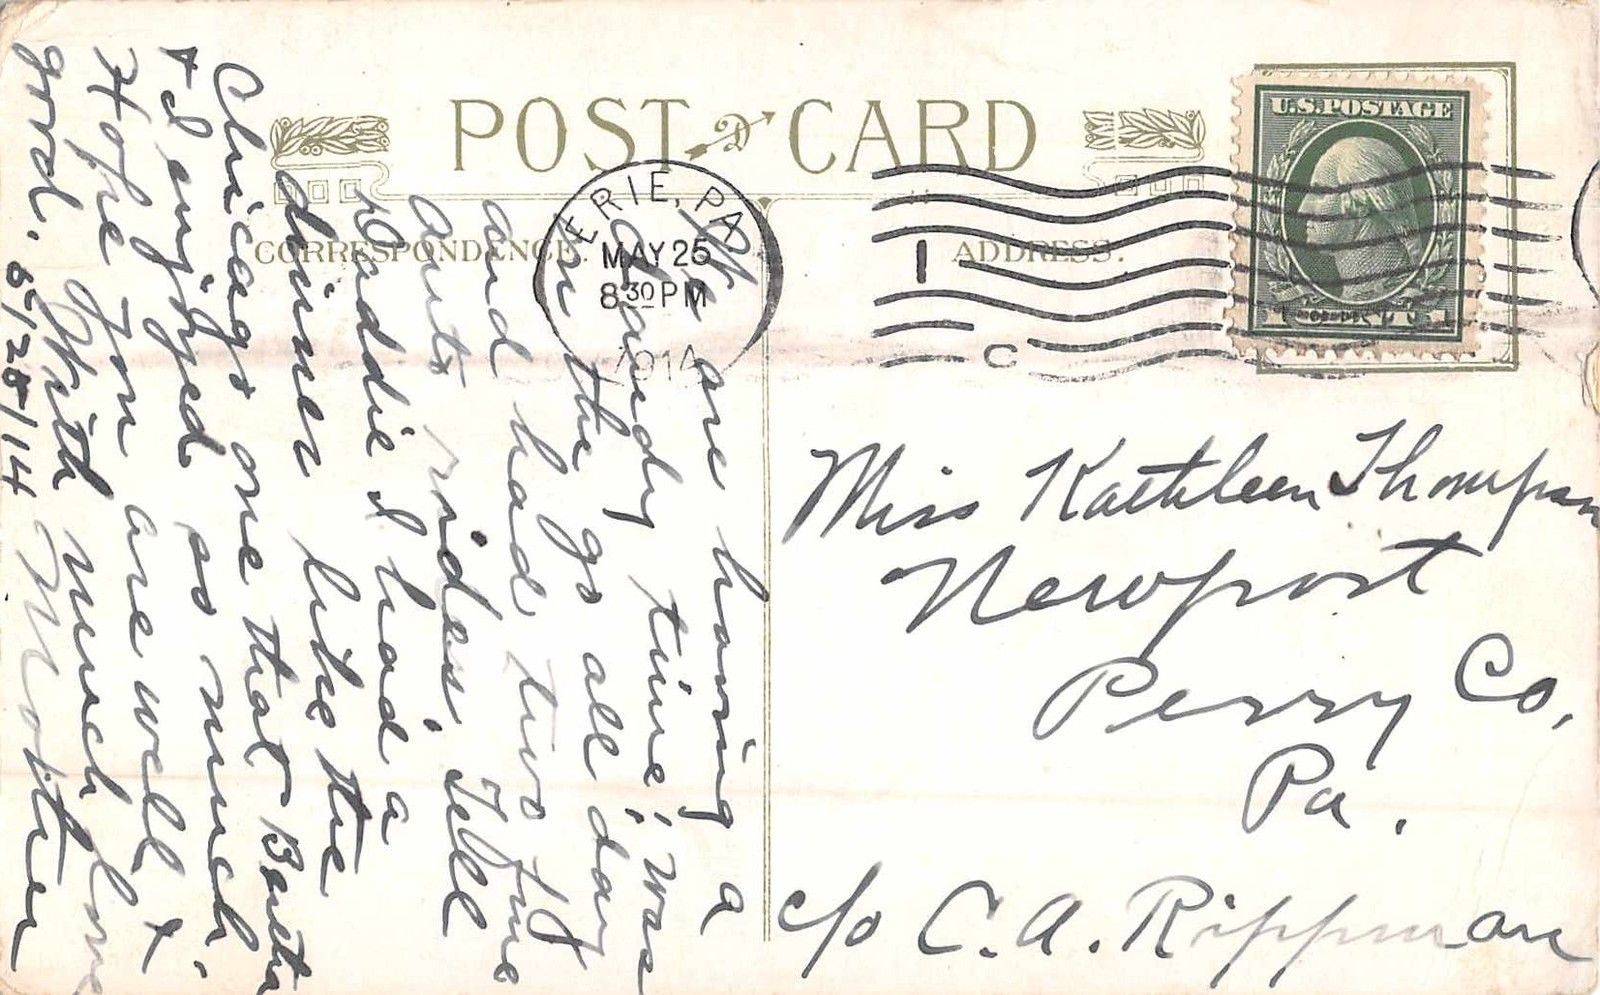 POST CARD
CORRESPONDENCE.
ADDRESS.
U.S. POSTAGE
ERIE, PA
MAY 25
8 30 PM
1914
We are having a
dandy time; was
on the go all day
and had two fine
auto rides. Tell
Daddie I had a
dinner like the
Chicago one that Bertha
& I enjoyed so much.
Hope you are well &
good. With much love
5/25/14 Mother
Miss Kathleen Thompson
Newport
Perry Co,
Pa.
c/o C. A. Rippman